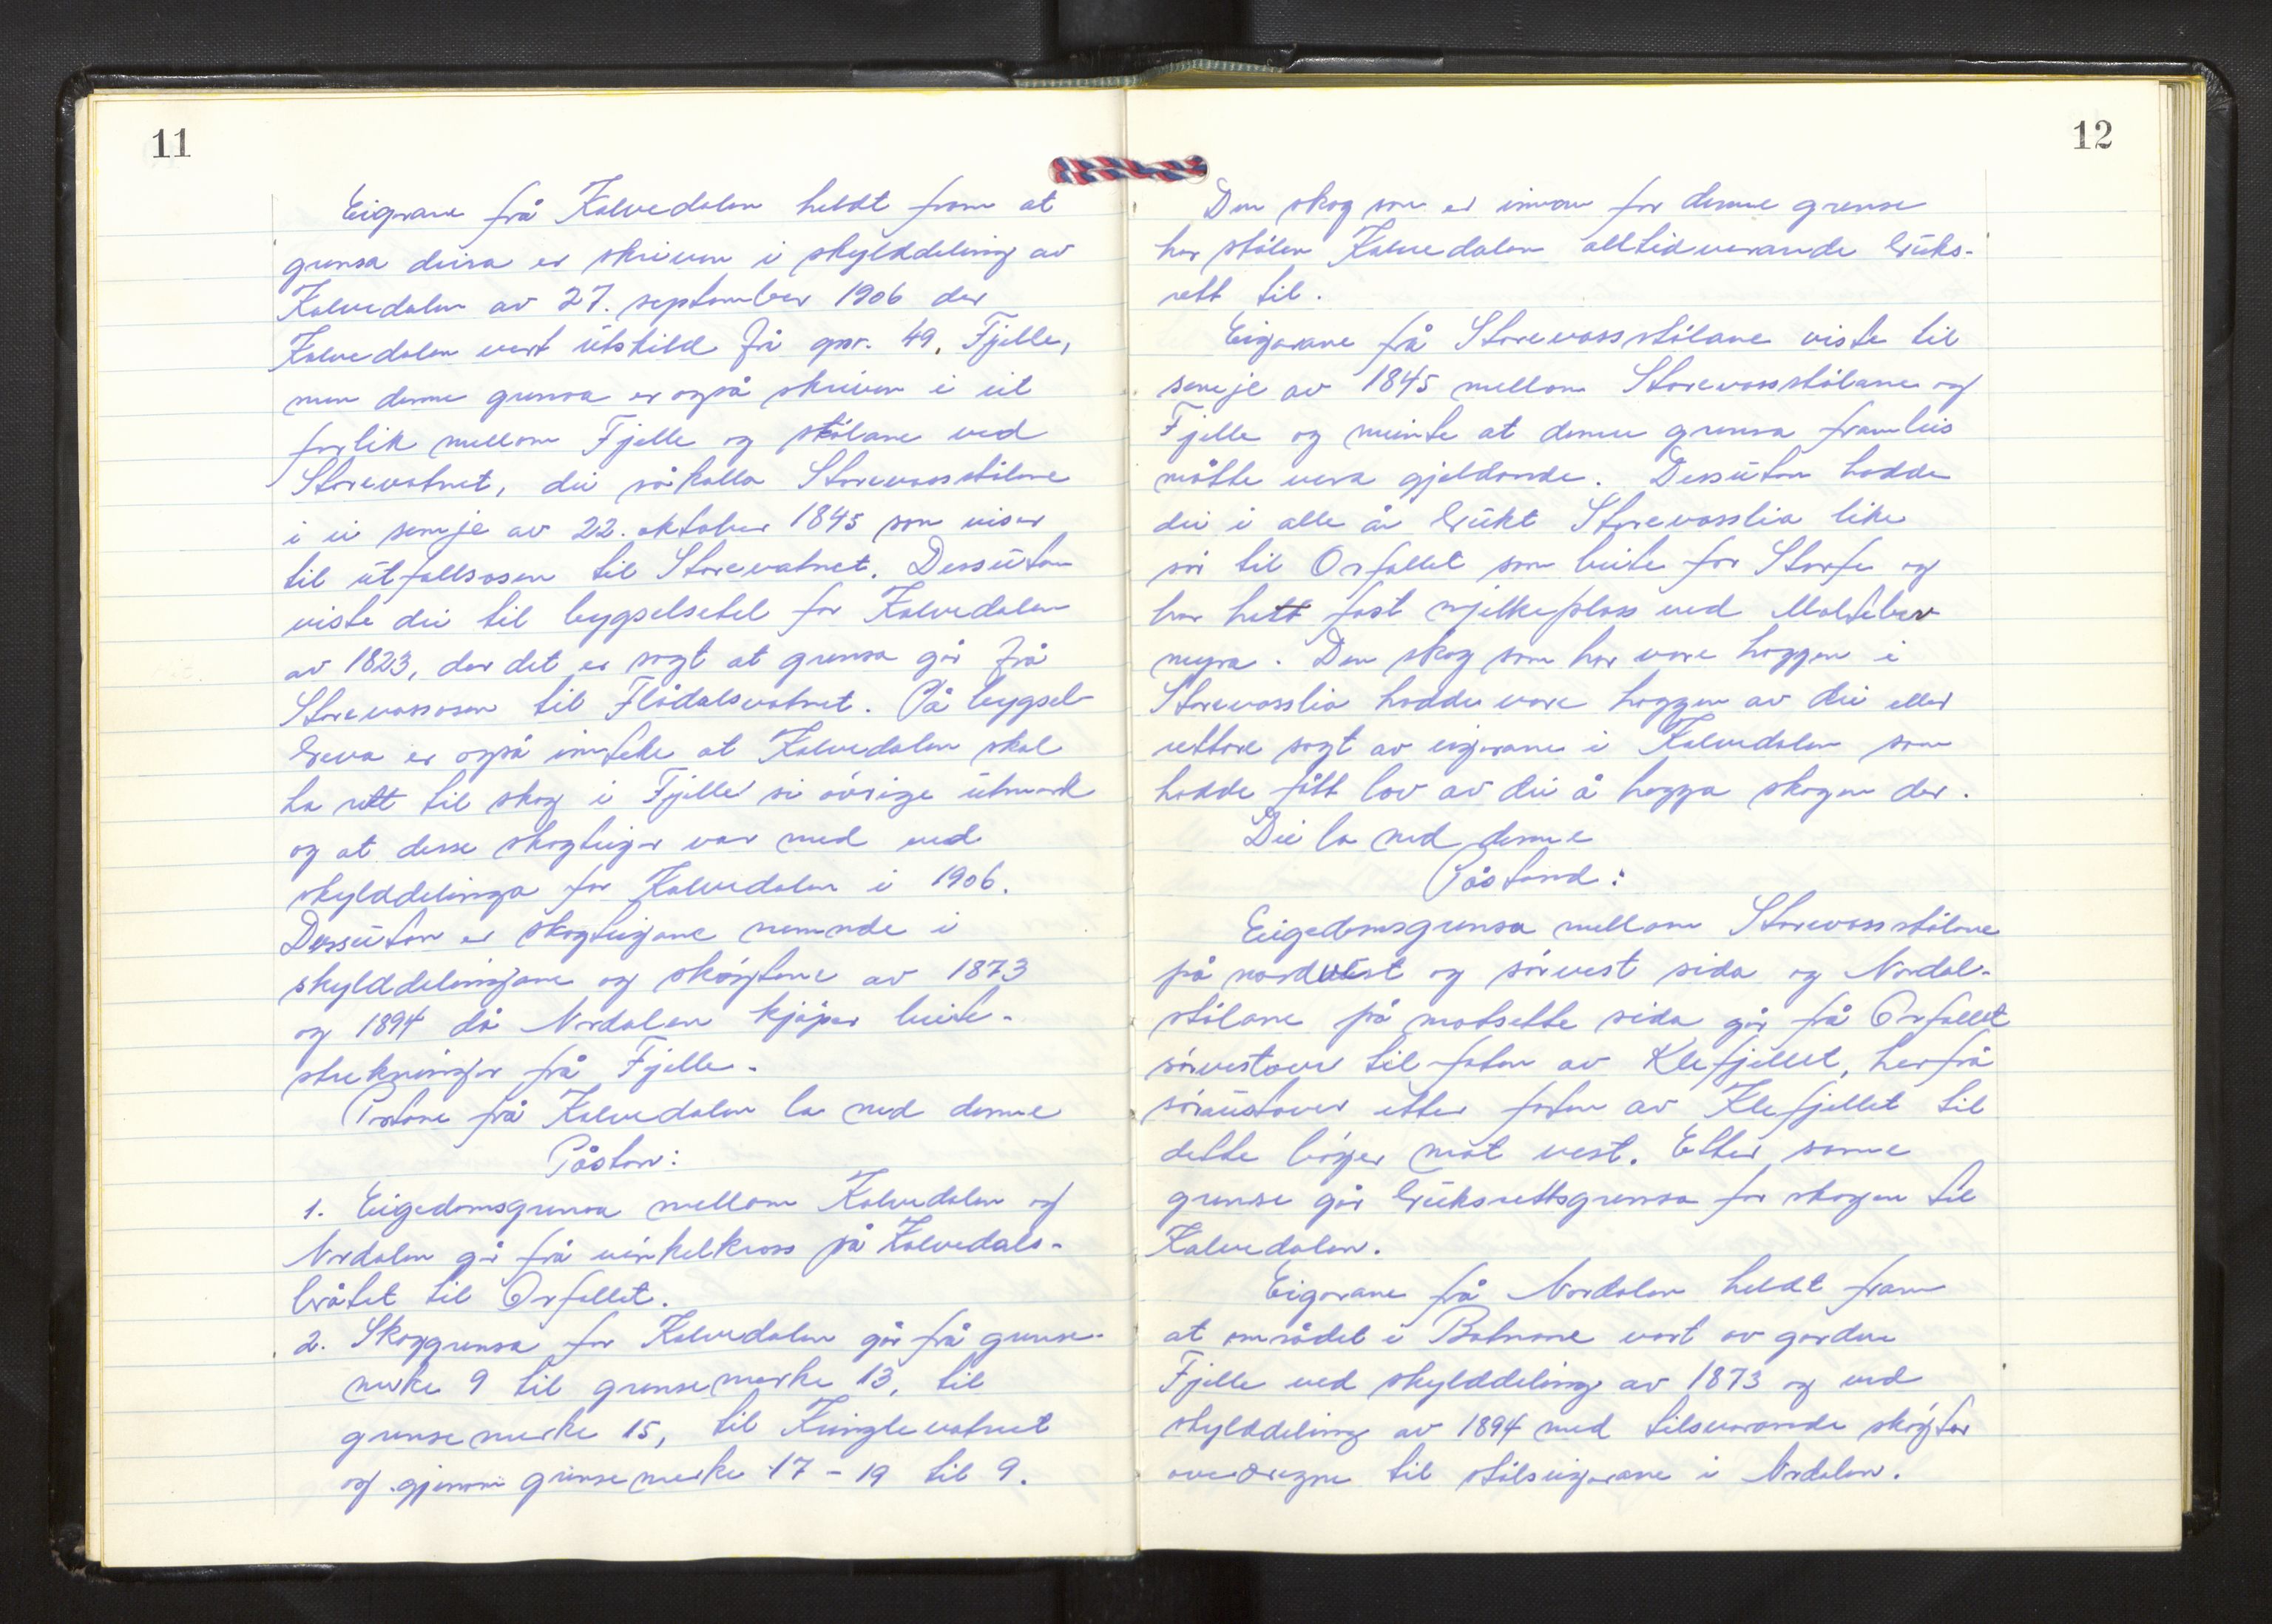 11
Eigarane frå Kalvedalen heldt fram at
grensa deira er skriven i skylddeling av
Kalvedalen av 27. september 1906 der
Kalvedalen vert utskild frå gnr. 49, Fjelle,
men denne grensa er også skriven i eit
forlik mellom Fjelle og stølane ved
Storevatnet, dei såkalla Storevassstølane
i ei semje av 22. oktober 1845 som viser
til utfallsosen til Storevatnet. Dessutan
viste dei til bygselsetel for Kalvedalen
av 1823, der det er sagt at grensa går frå
Storevassosen til Flådalsvatnet. På bygsel-
breva er også innteke at Kalvedalen skal
ha rett til skog i Fjelle si øvrige utmark
og at desse skogteigar var med ved
skylddelinga for Kalvedalen i 1906.
Dessutan er skogteigane nemnde i
skylddelingane og skøytene av 1873
og 1894 då Nordalen kjøper beite-
strekninger frå Fjelle.
Partane frå Kalvedalen la ned denne
Påstan:
1. Eigedomsgrensa mellom Kalvedalen og
Nordalen går frå vinkelkross på Kalvedals-
bråtet til Orfallet.
2. Skoggrensa for Kalvedalen går frå grense-
merke 9 til grensemerke 13, til
grensemerke 15, til Kringlevatnet
og gjenom grensemerke 17 - 19 til 9.
12
Den skog som er innan for denne grense
har stølen Kalvedalen alltidverande bruks-
rett til.
Eigarane frå Storevassstølane viste til
semje av 1845 mellom Storevassstølane og
Fjelle og meinte at denne grensa framleis
måtte vera gjeldande. Dessutan hadde
dei i alle år brukt Storevasslia like
sør til Orfallet som beite for Storfe og
har hatt fast mjelkeplass ved Molteber
myra. Den skog som har vore hoggen i
Storevasslia hadde vore hoggen av dei eller
rettare sagt av eigarane i Kalvedalen som
hadde fått lov av dei å hogga skogen der.
Dei la ned denne
Påstand:
Eigedomsgrensa mellom Storevassstølane
på nordvest og sørvest sida og Nordal-
stølane på motsette sida går frå Orfallet
sørvestover til foten av Klefjellet, herfrå
søraustover etter foten av Klefjellet til
dette bøyer mot vest. Etter same
grense går bruksrettsgrensa for skogen til
Kalvedalen.
Eigarane frå Nordalen heldt fram
at området i Botnane vart av garden
Fjelle ved skylddeling av 1873 og ved
skylddeling av 1894 med tilsvarande skøyter
overdregne til stølseigarane i Nordalen.